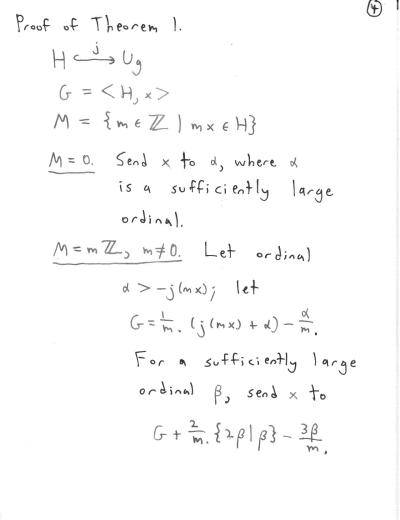 ④
Proof of Theorem 1.
H ↪ʲ Ug
G = <H, x>
M = {m ∈ ℤ | mx ∈ H}
M = 0. Send x to α, where α
is a sufficiently large
ordinal.
M = mℤ, m ≠ 0. Let ordinal
α > -j(mx); let
G = 1/m. (j(mx) + α) - α/m.
For a sufficiently large
ordinal β, send x to
G + 2/m. {2β|β} - 3β/m.